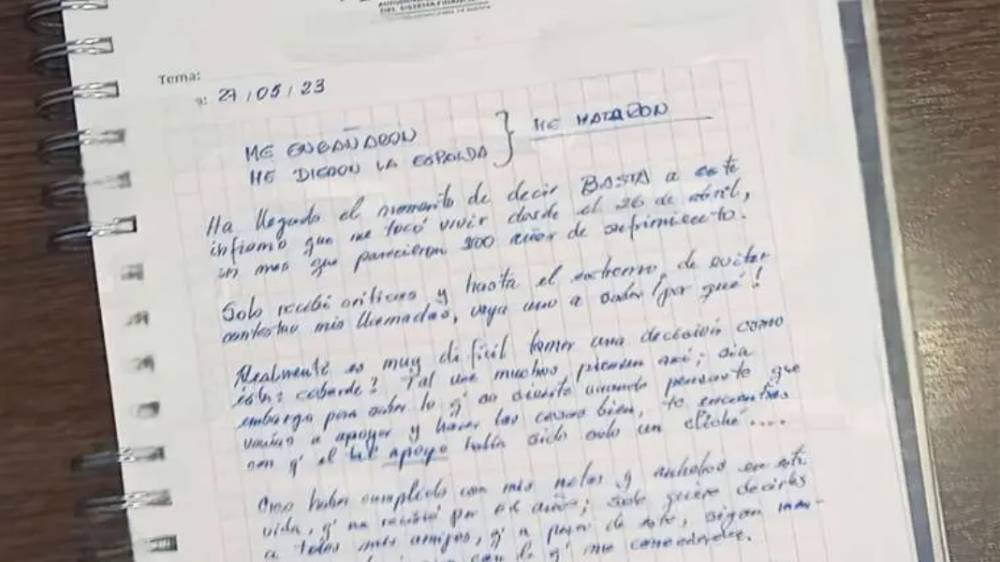 DEL SISTEMA FINANCIERO
Tema:
a: 27/05/23
ME ENGAÑARON
ME DIERON LA ESPALDA } ME MATARON
Ha llegado el momento de decir BASTA a este
infierno que me tocó vivir desde el 26 de abril,
un mes que parecieron 100 años de sufrimiento.
Solo recibí críticas y hasta el extremo, de evitar
contestar mis llamadas, vaya uno a saber ¡por qué!
Realmente es muy difícil tomar una decisión como
ésta; cobarde? Tal vez muchos piensen así; sin
embargo para saber lo q' se siente cuando pensaste que
vienen a apoyar y hacer las cosas bien, te encuentras
con q' el tal apoyo había sido solo un cliché....
Creo haber cumplido con mis metas y anhelos en esta
vida, q' me recibió por años; solo quiero decirles
a todos mis amigos, q' a pesar de esto, sigan
con la q' me conocieron.